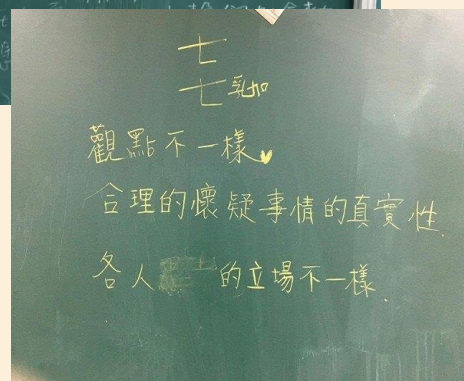 七
七乳加
觀點不一樣
合理的懷疑事情的真實性.
各人的立場不一樣.